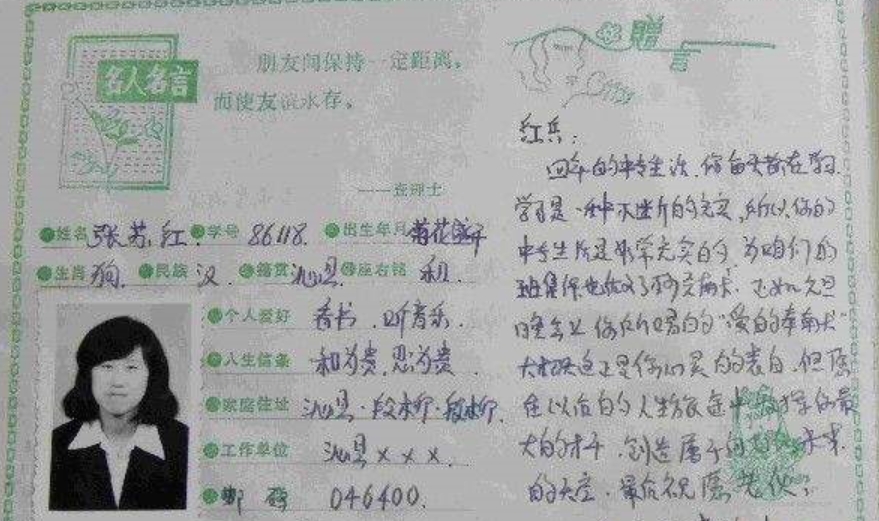 名人名言
朋友间保持一定距离，
而使友谊永存。
——查理士
姓名 张苏红 学号 86118. 出生年月
生肖 狗. 民族 汉. 籍贯 沁县 座右铭 和.
个人爱好 看书.听音乐.
人生信条 和为贵,忍为贵
家庭住址 沁县·段柳·段柳.
工作单位 沁县×××.
邮码 046400.
赠言
红兵:
四年的中专生活,你每天都在学习
学习是一种不断的充实,所以你的
中专生活是非常充实的,为咱们的
班集体也做了 正如元旦
晚会上你所唱的"爱的奉献"
大概这正是你心灵的表白.但愿
在以后的人生旅途中发挥你最
大的才干,创造属于 未来
的天空.最后祝愿